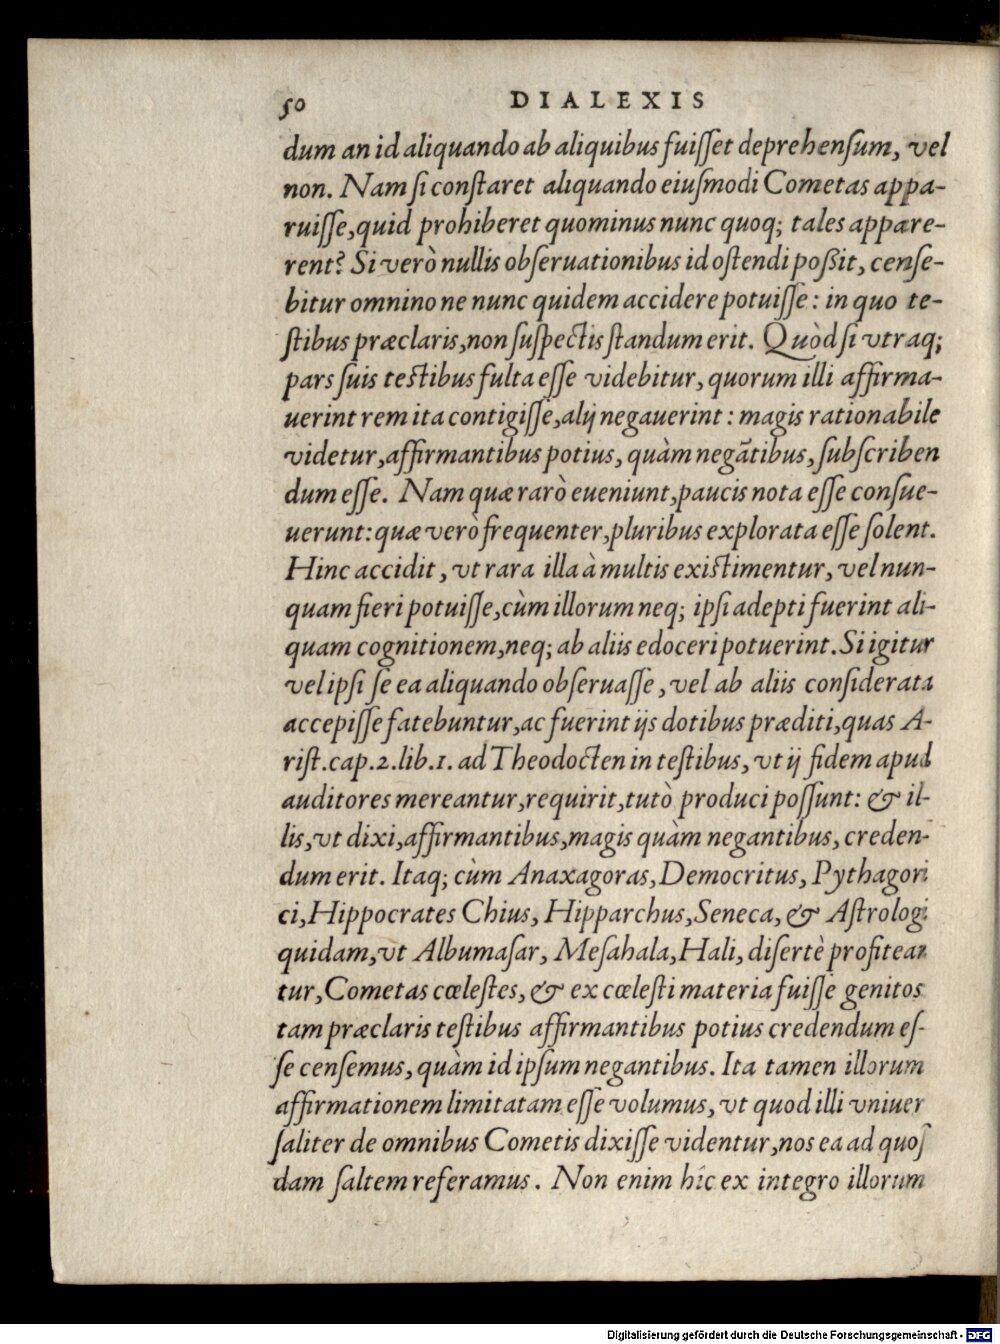 50 DIALEXIS
dum an id aliquando ab aliquibus fuiſſet deprehenſum, vel
non. Nam ſi conſtaret aliquando eiuſmodi Cometas appa-
ruiſſe, quid prohiberet quominus nunc quoq; tales appare-
rent? Si verò nullis obſeruationibus id oſtendi poßit, cenſe-
bitur omnino ne nunc quidem accidere potuiſſe: in quo te-
ſtibus præclaris, non ſuſpectis ſtandum erit. Quòd ſi vtraq;
pars ſuis teſtibus fulta eſſe videbitur, quorum illi affirma-
uerint rem ita contigiſſe, alij negauerint: magis rationabile
videtur, affirmantibus potius, quàm negãtibus, ſubſcriben
dum eſſe. Nam quæ rarò eueniunt, paucis nota eſſe conſue-
uerunt: quæ verò frequenter, pluribus explorata eſſe ſolent.
Hinc accidit, vt rara illa à multis exiſtimentur, vel nun-
quam fieri potuiſſe, cùm illorum neq; ipſi adepti fuerint ali-
quam cognitionem, neq; ab aliis edoceri potuerint. Si igitur
vel ipſi ſe ea aliquando obſeruaſſe, vel ab aliis conſiderata
accepiſſe fatebuntur, ac fuerint ijs dotibus præditi, quas A-
riſt. cap. 2. lib. 1. ad Theodocten in teſtibus, vt ij fidem apud
auditores mereantur, requirit, tutò produci poſſunt: & il-
lis, vt dixi, affirmantibus, magis quàm negantibus, creden-
dum erit. Itaq; cùm Anaxagoras, Democritus, Pythagori
ci, Hippocrates Chius, Hipparchus, Seneca, & Aſtrologi
quidam, vt Albumaſar, Meſahala, Hali, diſertè profitean
tur, Cometas cœleſtes, & ex cœleſti materia fuiſſe genitos
tam præclaris teſtibus affirmantibus potius credendum eſ-
ſe cenſemus, quàm id ipſum negantibus. Ita tamen illorum
affirmationem limitatam eſſe volumus, vt quod illi vniuer
ſaliter de omnibus Cometis dixiſſe videntur, nos ea ad quoſ
dam ſaltem referamus. Non enim hîc ex integro illorum
Digitalisierung gefördert durch die Deutsche Forschungsgemeinschaft - DFG